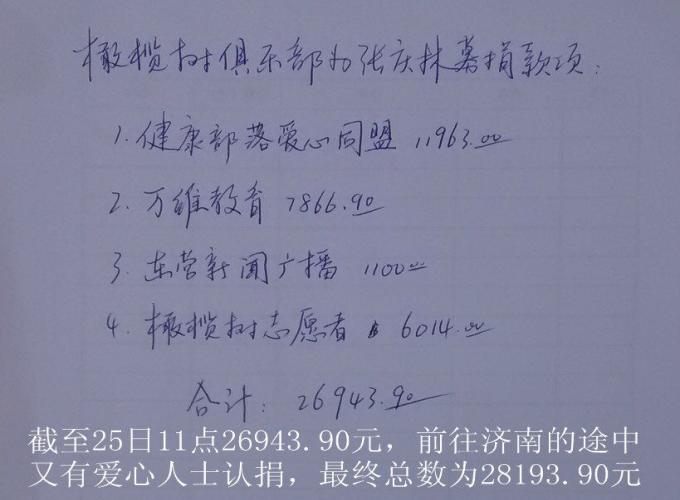 橄榄树俱乐部为张庆林募捐款项：
1. 健康部落爱心同盟 11963.00
2. 万维教育 7866.90
3. 东营新闻广播 1100.00
4. 橄榄树志愿者 6014.00
合计：26943.90
截至25日11点26943.90元，前往济南的途中
又有爱心人士认捐，最终总数为28193.90元